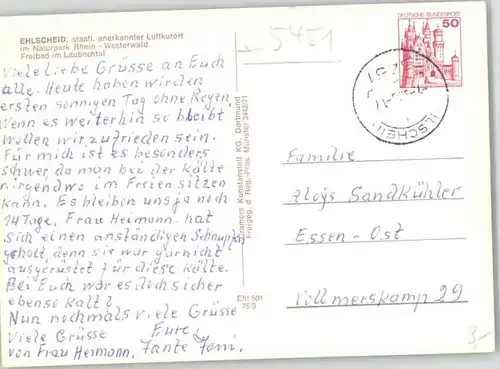 EHLSCHEID, staatl. anerkannter Luftkurort
im Naturpark Rhein - Westerwald
Freibad im Laubachtal
Viele liebe Grüsse an Euch
alle. Heute haben wir den
ersten sonnigen Tag ohne Regen,
Wenn es weiterhin so bleibt
wollen wir zufrieden sein.
Für mich ist es besonders
schwer da man bei der Kälte
nirgendwo im Freien sitzen
kann. Es bleiben uns ja noch
14 Tage. Frau Heimann hat
sich einen anständigen Schnupfen
geholt, denn sie war garnicht
ausgerüstet für diese Kälte.
Bei Euch war es doch sicher
ebenso kalt?
Nun nochmals viele Grüsse
Viele Grüsse Eure,
von Frau Heimann. Tante Toni.
Cramers Kunstanstalt KG, Dortmund
Freigeg. d. Reg.-Präs. Münster 3442/71
Eht 501
76/3
5451
DEUTSCHE BUNDESPOST
50
Familie
Aloys Sandkühler
Essen-Ost
Vollmerskamp 29
3.-